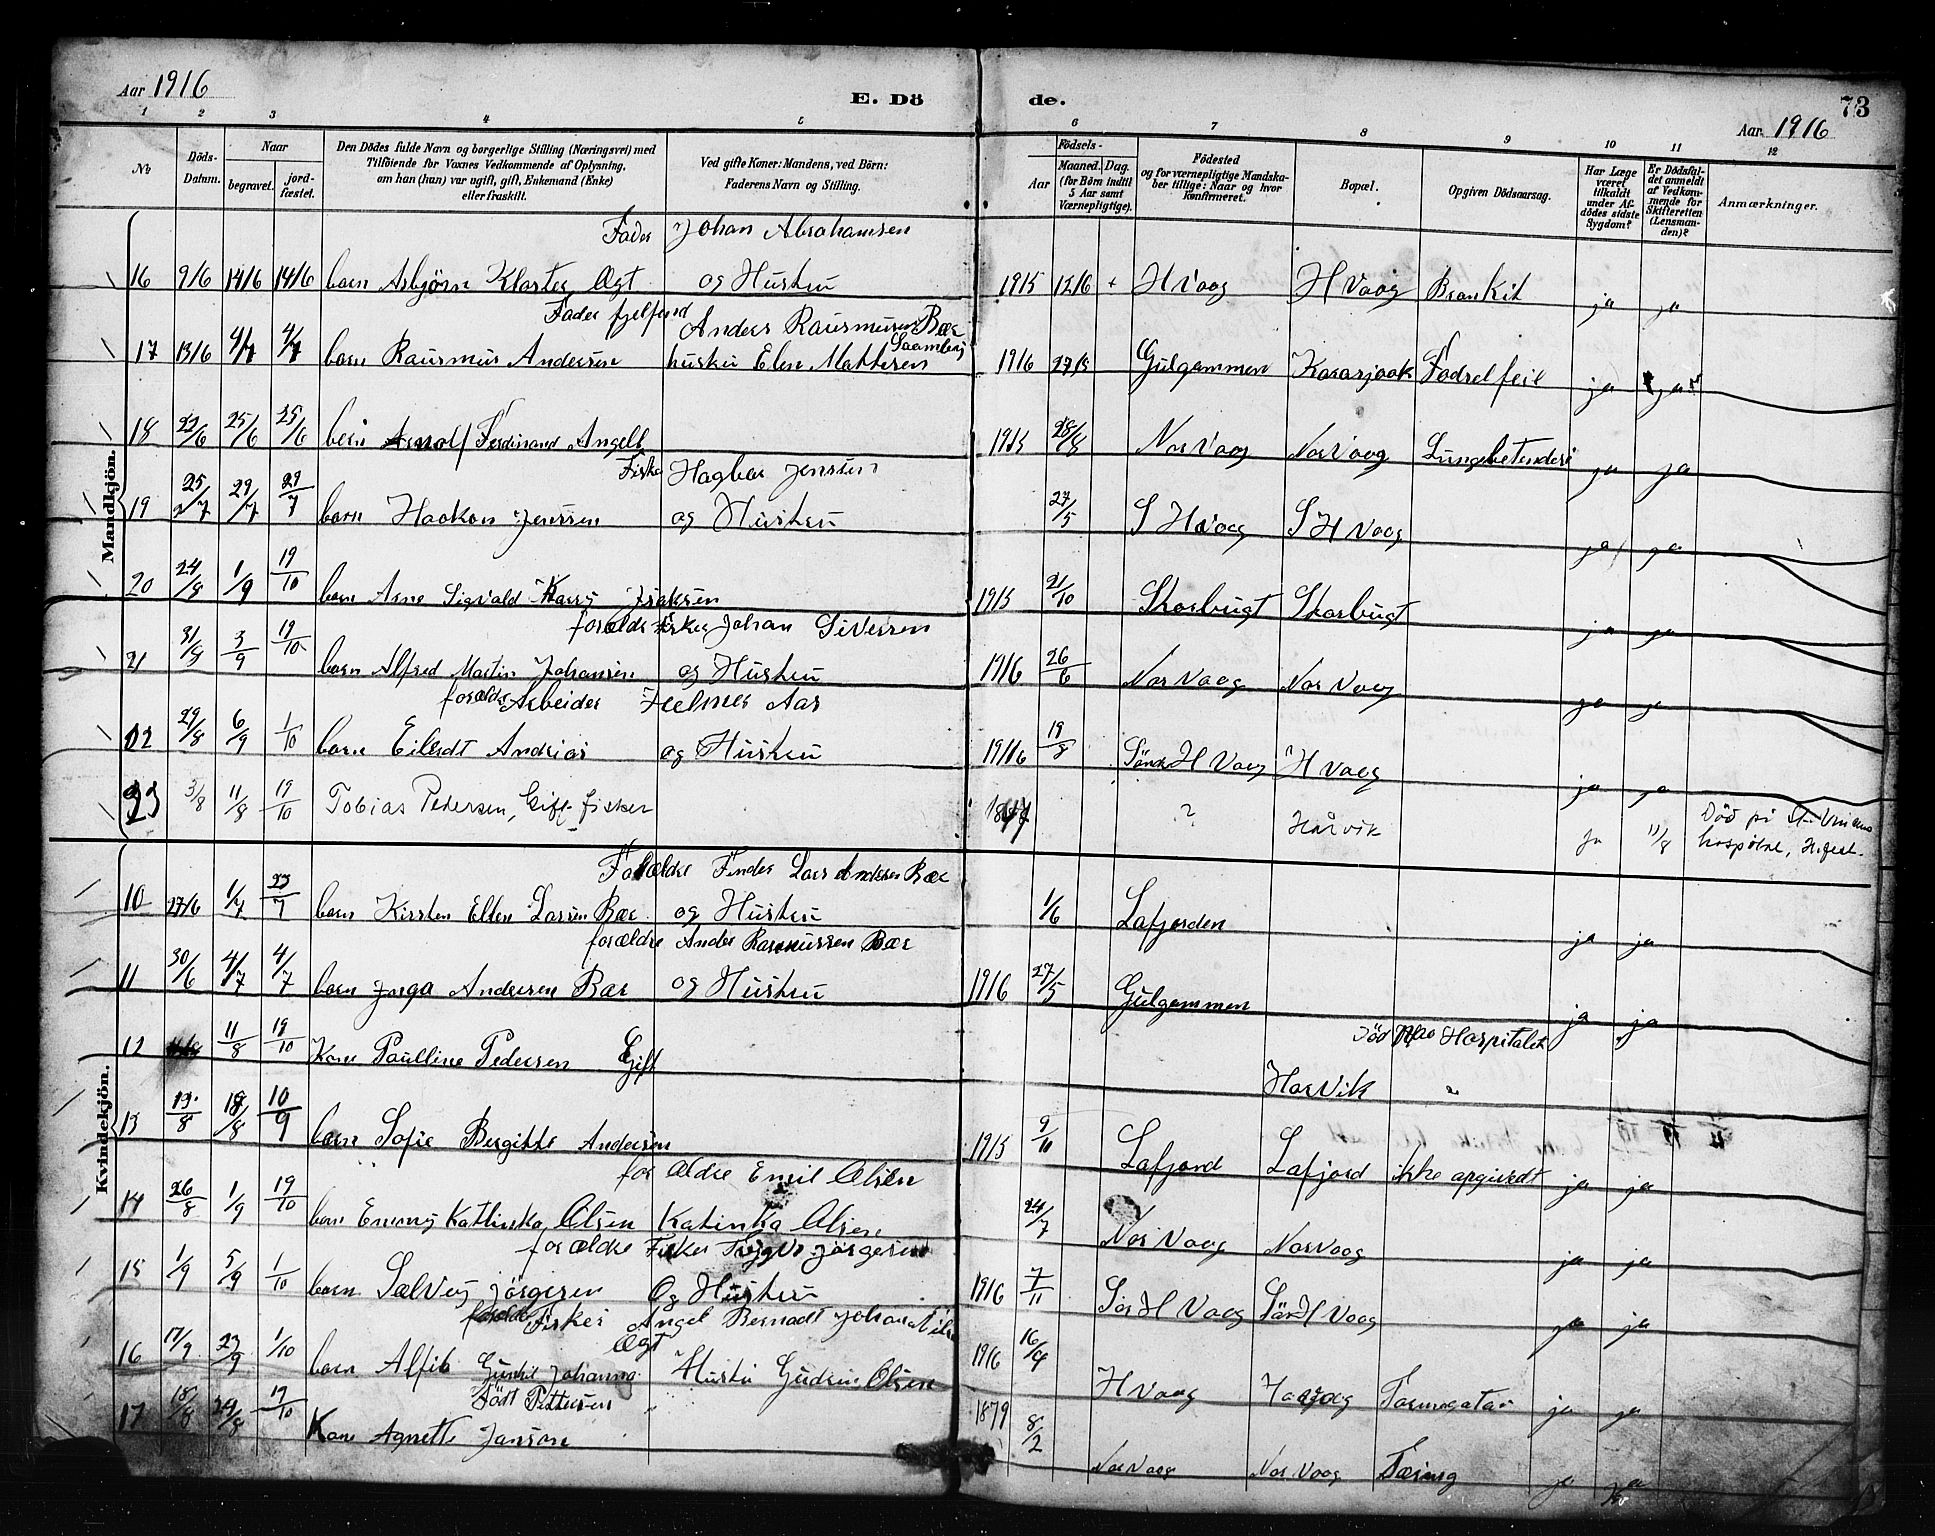 Aar 1916
E. Dö
de.
73
Aar 1916
1 2 3 4 5 6 7 8 9 10 11 12
No
Döds-Datum.
Naar
begravet.
jord-fæstet.
Den Dödes fulde Navn og borgerlige Stilling (Næringsvei) med
Tilföiende for Voxnes Vedkommende af Oplysning,
om han (hun) var ugift, gift, Enkemand (Enke)
eller fraskilt.
Ved gifte Koner: Mandens, ved Börn:
Faderens Navn og Stilling.
Födsels-
Aar
Maaned.
Dag.
(for Börn indtil
5 Aar samt
Værnepligtige).
Födested
og for værnepligtige Mandska-
ber tillige: Naar og hvor
Konfirmeret.
Bopæl.
Opgiven Dödsaarsag.
Har Læge
været
tilkaldt
under Af-
dödes sidste
Sygdom?
Er Dödsfal-
det anmeldt
af Vedkom-
mende for
Skifteretten
(Lensman-
den)?
Anmærkninger.
Mandkjön.
Fader Johan Abrahamsen
16 9/6 14/6 14/6 barn Asbjörn Klostes Ægt og Hustru 1915 12/6 + H Vaag H Vaag Bronkit ja ja
Anders Rausmusen Bær
17 13/6 4/7 4/7 barn Rausmus Andersen hustru Elen Mathisen 1916 27/5 Gulgammen Karasjoak Födselfeil ja ja
18 22/6 25/6 25/6 barn Arnolf Ferdinand Angell 1915 28/8 Nor Vaag Nor Vaag ja ja
Fisker Hagbar Jensen
19 25/7 29/7 29/7 barn Haakon Jenssen og Hustru 27/5 S H Vaag S H Vaag ja ja
20 24/8 1/9 19/10 barn Arne Sigvald Harry Isaksen 1915 21/10 Skarbugt Skarbugt ja ja
forældre Fisker Johan Siversen
21 31/8 3/9 19/10 barn Alfred Martin Johansen og Hustru 1916 26/6 Nor Vaag Nor Vaag ja ja
forældre Arbeider Helmer Aas
22 29/8 6/9 1/10 barn Eilerdt Andreas og Hustru 1916 19/8 Sönd H Vaag H Vaag ja ja
23 3/8 11/8 19/10 Tobias Pedersen, Gift fisker ? Hårvik ja 11/8 Död på St. Vincens
hospital, H.fest.
Kvindekjön.
Forældre Finder Lars Andersen Bær
10 27/6 1/7 23/7 barn Kirsten Ellen Larsen Bær og Hustru 1/6 Lafjorden ja ja
forældre Anders Rasmussen Bær
11 30/6 4/7 4/7 barn Inga Andersen Bær og Hustru 1916 27/5 Gulgammen ja ja
Död paa Hospitalet
12 11/8 19/10 Kone Paulline Pedersen Gift HarVik
13 13/8 18/8 10/9 barn Sofie Bergitte Andersen 1915 9/10 Lafjord Lafjord ikke opgivedt ja ja
forældre Emil Olsen
14 26/8 1/9 19/10 barn Emmy Katinka Olsen Katinka Olsen 24/7 Nor Vaag Nor Vaag ja ja
forældre Fisker Trygve Jörgesen
15 1/9 5/9 1/10 barn Sælvey Jörgesen Og Hustru 1916 7/11 Sör H Vaag Sör H Vaag ja ja
forældre Fisker Angel Bernadt Johan Nils
Ægt
16 17/9 23/9 1/10 barn Alfib Gunhil Johanna Hustru Gudrun Olsen 1916 16/4 H Vaag Ha Vaag ja ja
Födt Pettersen
17 18/8 24/8 19/10 Kone Agnette Janson 1879 8/2 Nor Vaag Nor Vaag Tæring ja ja